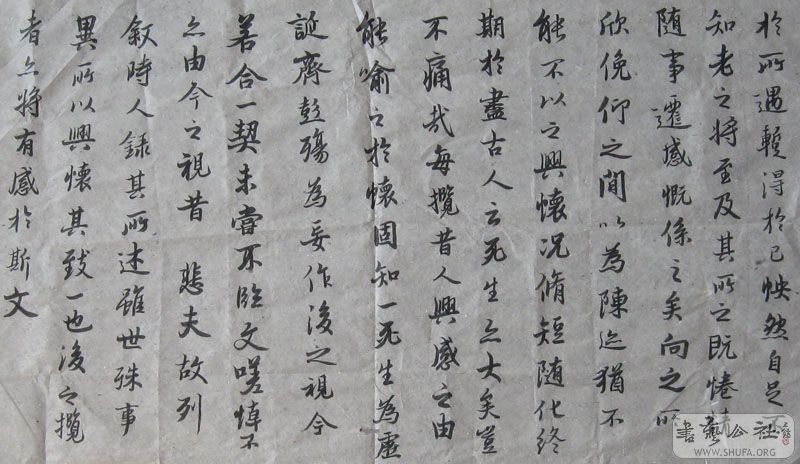 於所遇蹔得於己怏然自足不
知老之將至及其所之既惓情
随事遷感慨係之矣向之所
欣俛仰之間以為陳迹猶不
能不以之興懷况脩短随化終
期於盡古人云死生亦大矣豈
不痛哉每攬昔人興感之由
能喻之於懷固知一死生為虛
誕齊彭殤為妄作後之視今
若合一契未嘗不臨文嗟悼不
亦由今之視昔 悲夫故列
敘時人録其所述雖世殊事
異所以興懷其致一也後之攬
者亦將有感於斯文
書藝公社
WWW.SHUFA.ORG